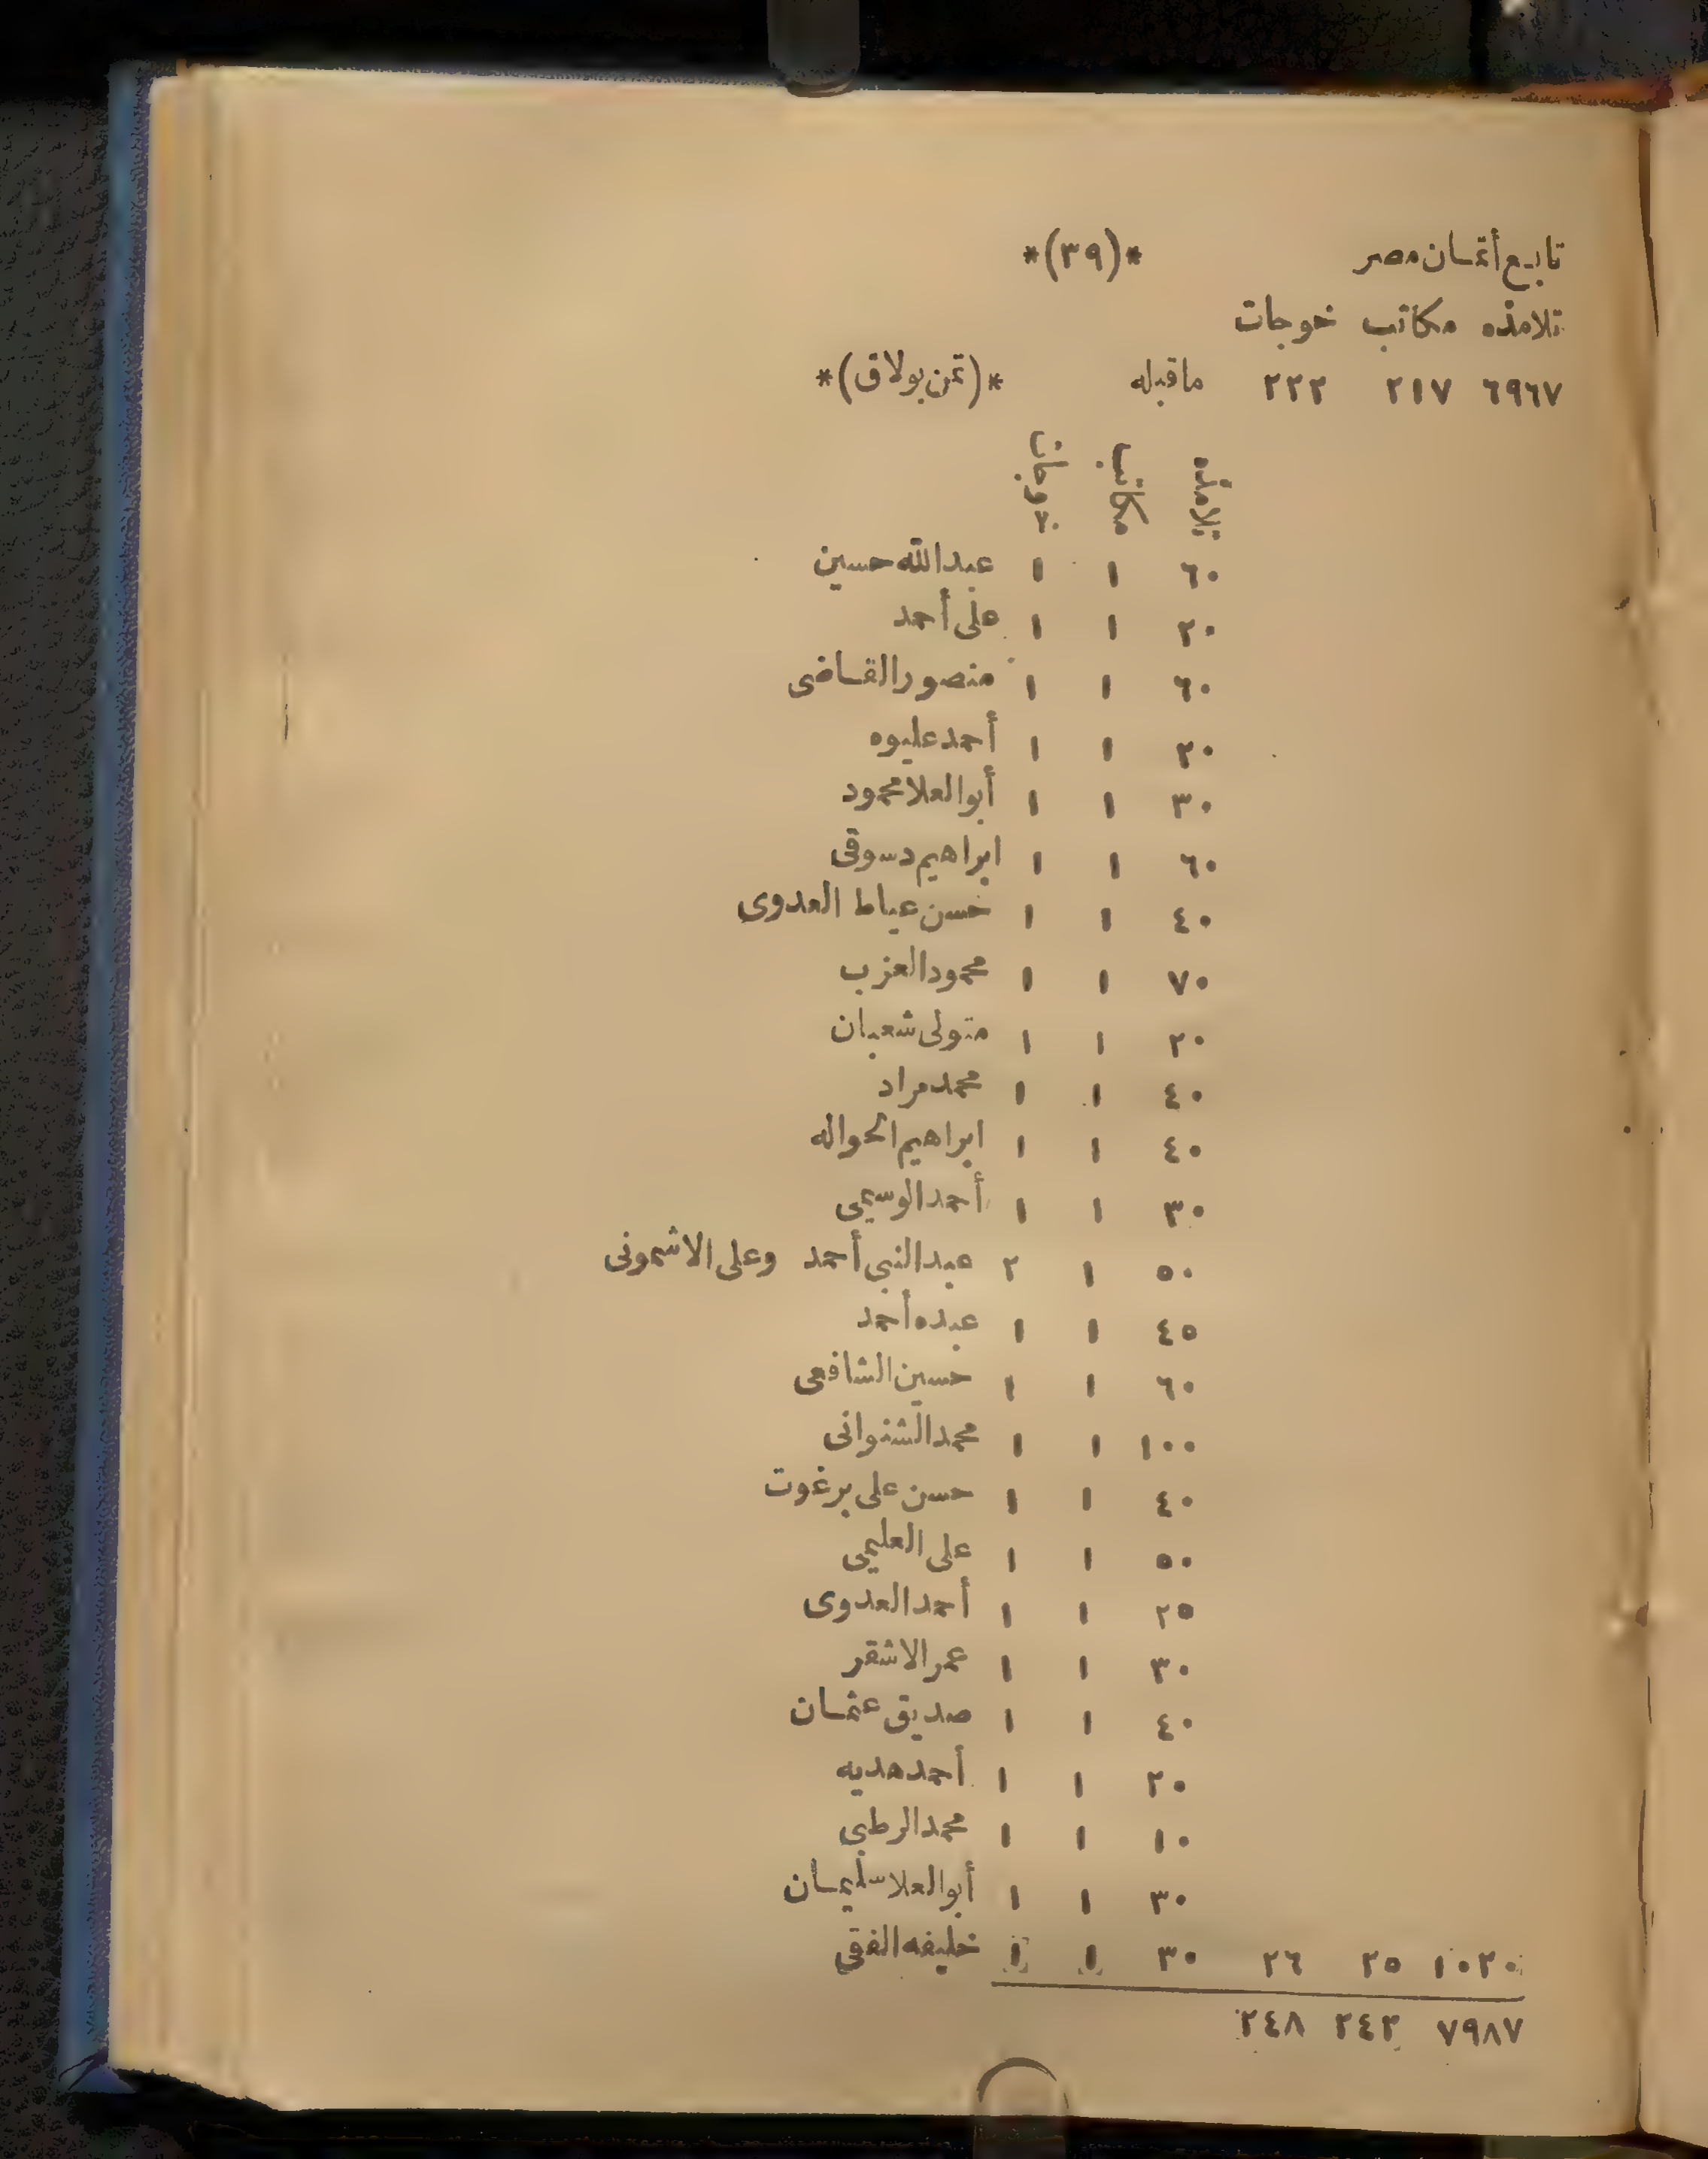 تابع أثمان مصر *(٣٩)*
تلامذه مكاتب خوجات
٦٩٦٧ ٢١٧ ٢٢٢ ماقبله *(ثمن بولاق)*
تلامذه مكاتب خوجات
٦٠ ١ ١ عبدالله حسين
٢٠ ١ ١ على أحمد
٦٠ ١ ١ منصور القاضى
٢٠ ١ ١ أحمد عليوه
٣٠ ١ ١ أبوالعلا محمود
٦٠ ١ ١ ابراهيم دسوقى
٤٠ ١ ١ حسن عياط العدوى
٧٠ ١ ١ محمود العزب
٢٠ ١ ١ متولى شعبان
٤٠ ١ ١ محمد مراد
٤٠ ١ ١ ابراهيم الحواله
٣٠ ١ ١ أحمد الوسيمى
٥٠ ١ ٢ عبدالنبى أحمد وعلى الاشمونى
٤٥ ١ ١ عبده أحمد
٦٠ ١ ١ حسين الشافعى
١٠٠ ١ ١ محمد الشنوانى
٤٠ ١ ١ حسن على برغوت
٥٠ ١ ١ على العليمى
٢٥ ١ ١ أحمد العدوى
٣٠ ١ ١ عمر الاشقر
٤٠ ١ ١ صديق عثمان
٢٠ ١ ١ أحمد هديه
١٠ ١ ١ محمد الرطبى
٣٠ ١ ١ أبوالعلا سليمان
١٠٢٠ ٢٥ ٢٦ ٣٠ ١ ١ خليفه الفقى
٧٩٨٧ ٢٤٢ ٢٤٨